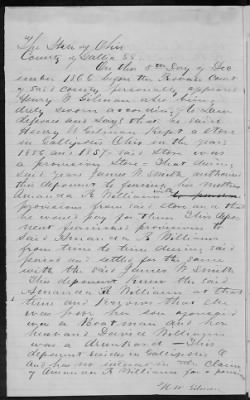 The State of Ohio
County of Gallia SS
On this 8th Day of Dec
ember 1866 before the Probate Court
of said County personally appeared
Henry W. Gilman who being
duly sworn according to Law
deposes and says that he said
Henry W Gilman Kept a store
in Gallipolis Ohio in the years
1856 and 1857 Said Store was
a provision Store – That during
said years James W Smith authorized
this deponent to furnish his mother
Amanda A Williams with
provisions from said store and that
he would pay for them This depo
nent furnished provisions to
said Amanda A Williams
from time to time during said
period and settled for the same
with the said James W Smith
This deponent knew the said
Amanda A Williams at that
time and Knows that she
was poor her son
was a Boatman and her
husband Daniel Williams
was a drunkard – This
deponent resides in Gallipolis O
and has no interest in the claim
of Amanda A Williams for a pension
H W Gilman